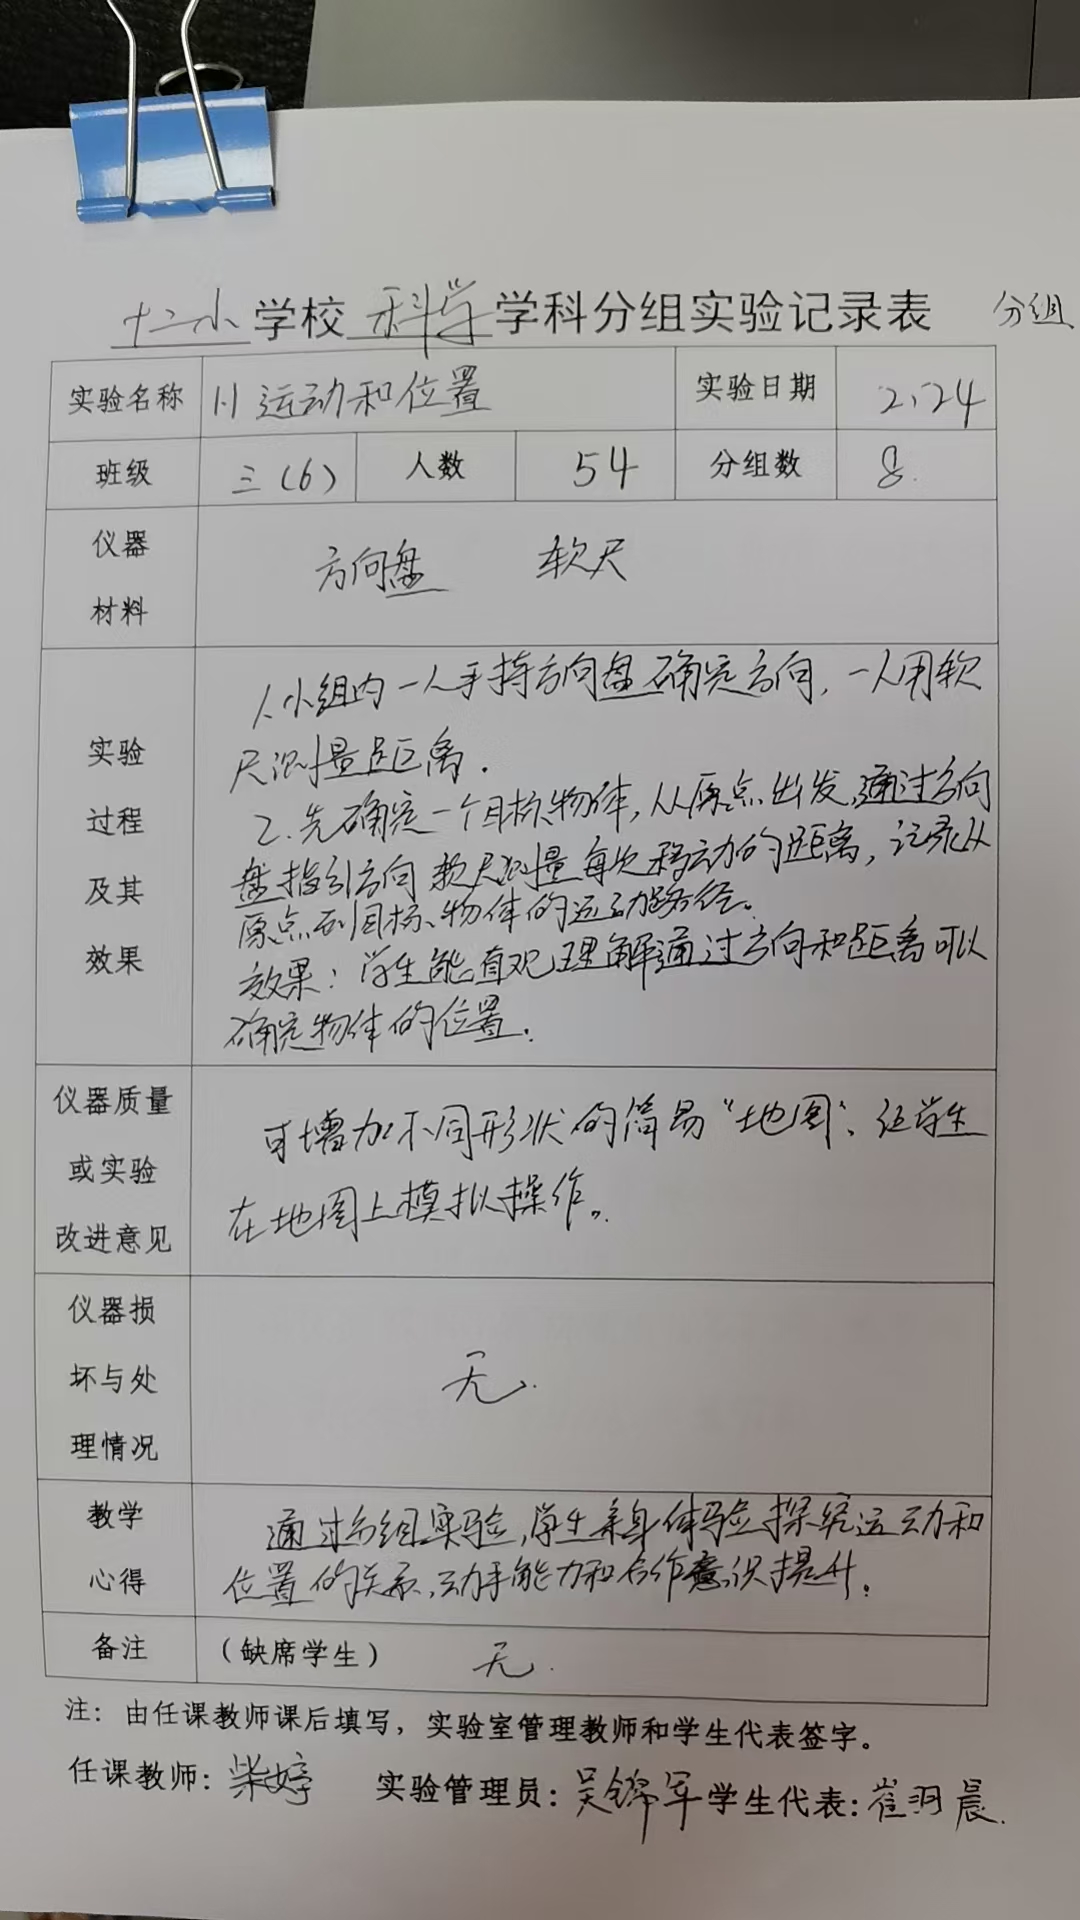 十二小学校科学学科分组实验记录表 分组
实验名称 1.1 运动和位置 实验日期 2.24
班级 三(6) 人数 54 分组数 8.
仪器材料 方向盘 软尺
实验过程及其效果
1.小组内一人手持方向盘确定方向,一人用软
尺测量距离.
2.先确定一个目标物体,从原点出发,通过方向
盘指引方向 软尺测量每次移动的距离,记录从
原点到目标物体的运动路径。
效果:学生能直观理解通过方向和距离可以
确定物体的位置.
仪器质量或实验改进意见
可增加不同形状的简易“地图”,让学生
在地图上模拟操作。
仪器损坏与处理情况 无.
教学心得
通过分组实验,学生亲身体验探究运动和
位置的关系,动手能力和合作意识提升.
备注 (缺席学生) 无.
注:由任课教师课后填写,实验室管理教师和学生代表签字。
任课教师:柴婷 实验管理员:吴锦军 学生代表:崔羽晨.